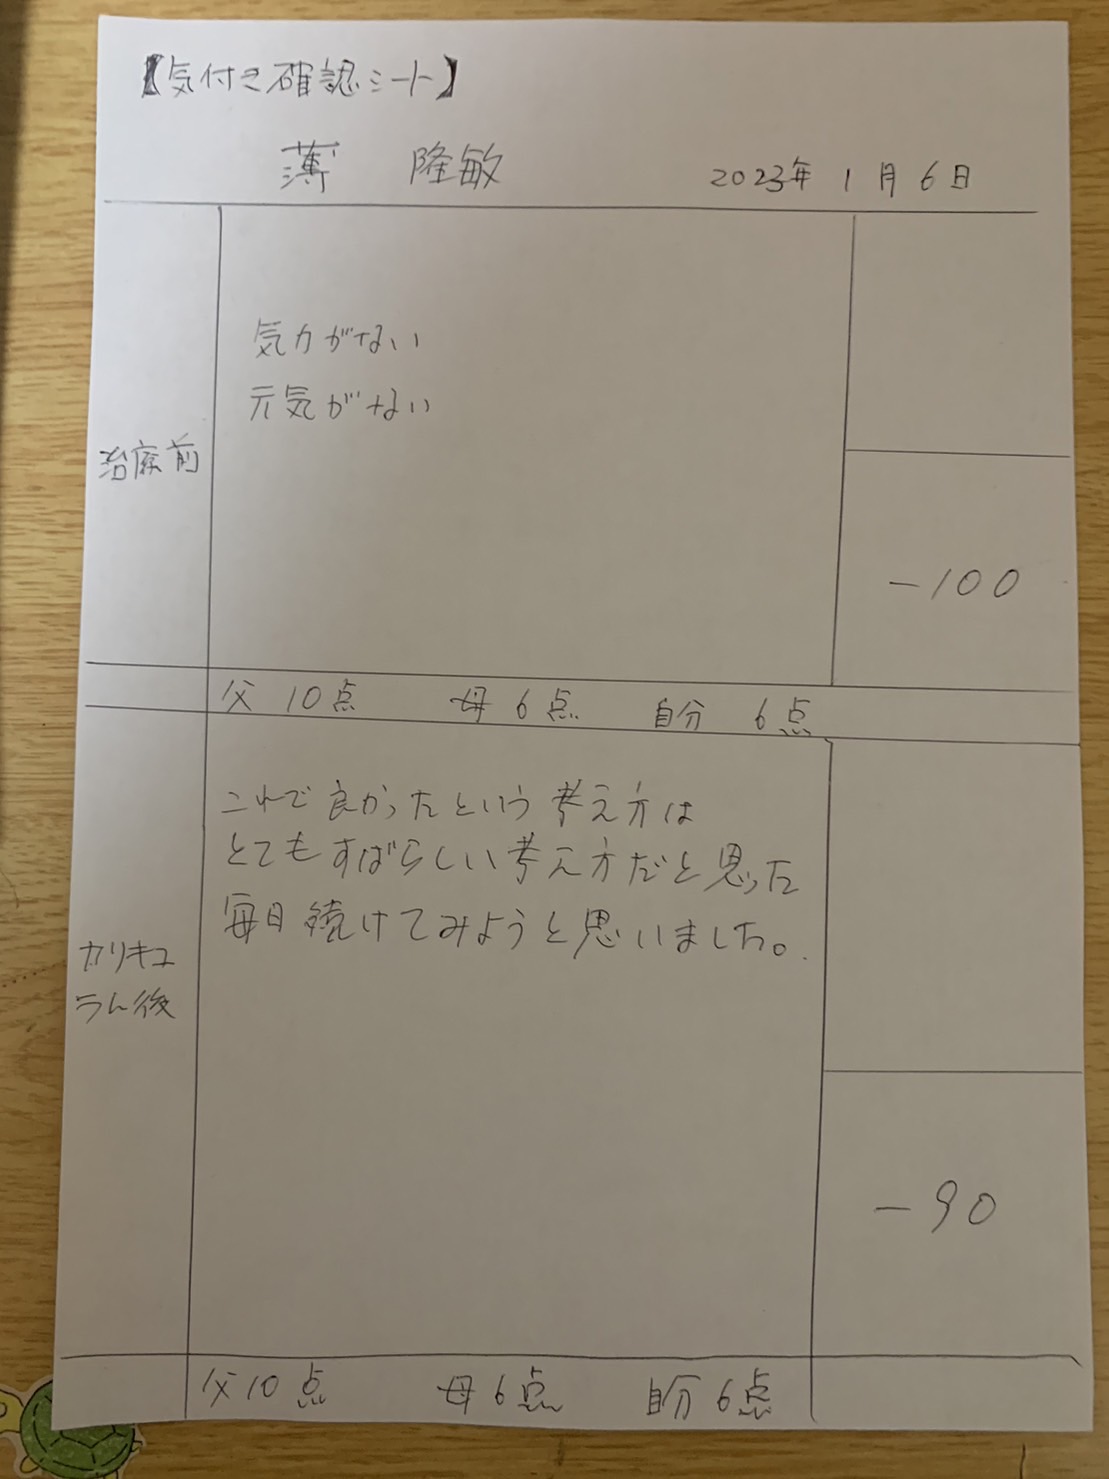 【気付き確認シート】
薄 隆敏 2023年 1月 6日
気力がない
元気がない
治療前
-100
父 10点 母 6点 自分 6点
これで良かったという考え方は
とてもすばらしい考え方だと思った
毎日続けてみようと思いました。
カリキュ
ラム後
-90
父10点 母6点 自分6点